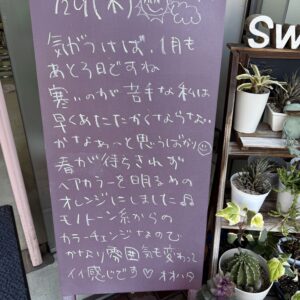 29(木)
Sw
気がつけば、1月も
あと3日ですね
寒いのが苦手な私は
早くあたたかくならない
かなぁ〜と思うばかり
春が待ちきれず
ヘアカラーを明るめの
オレンジにしました♫
モノトーン系からの
カラーチェンジなので
かなり雰囲気も変わって
イイ感じです♡ オオハタ